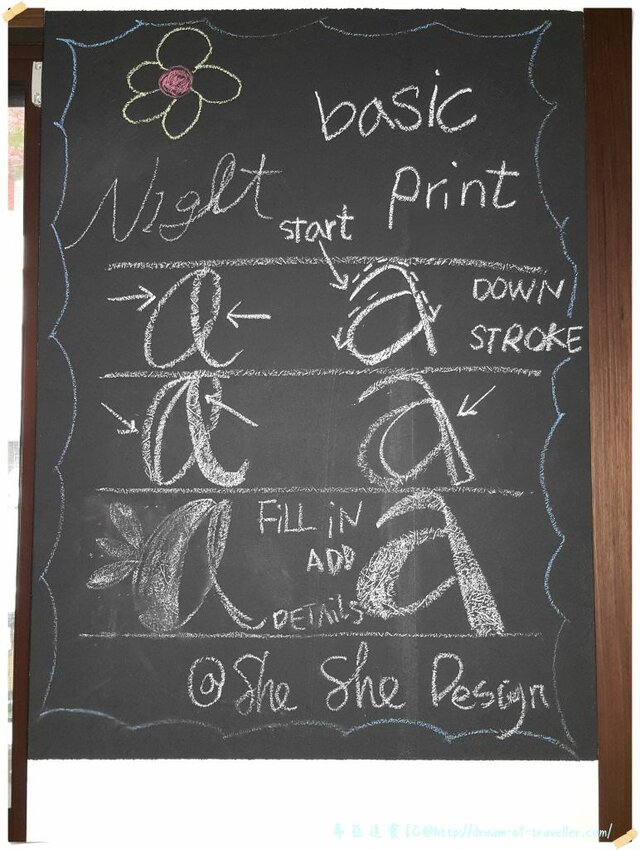 basic
Night
print
start
a a DOWN
STROKE
a a
a FILL IN a
ADD
DETAILS
@ She She Design
希亞迷食記@http://dream-of-traveller.com/